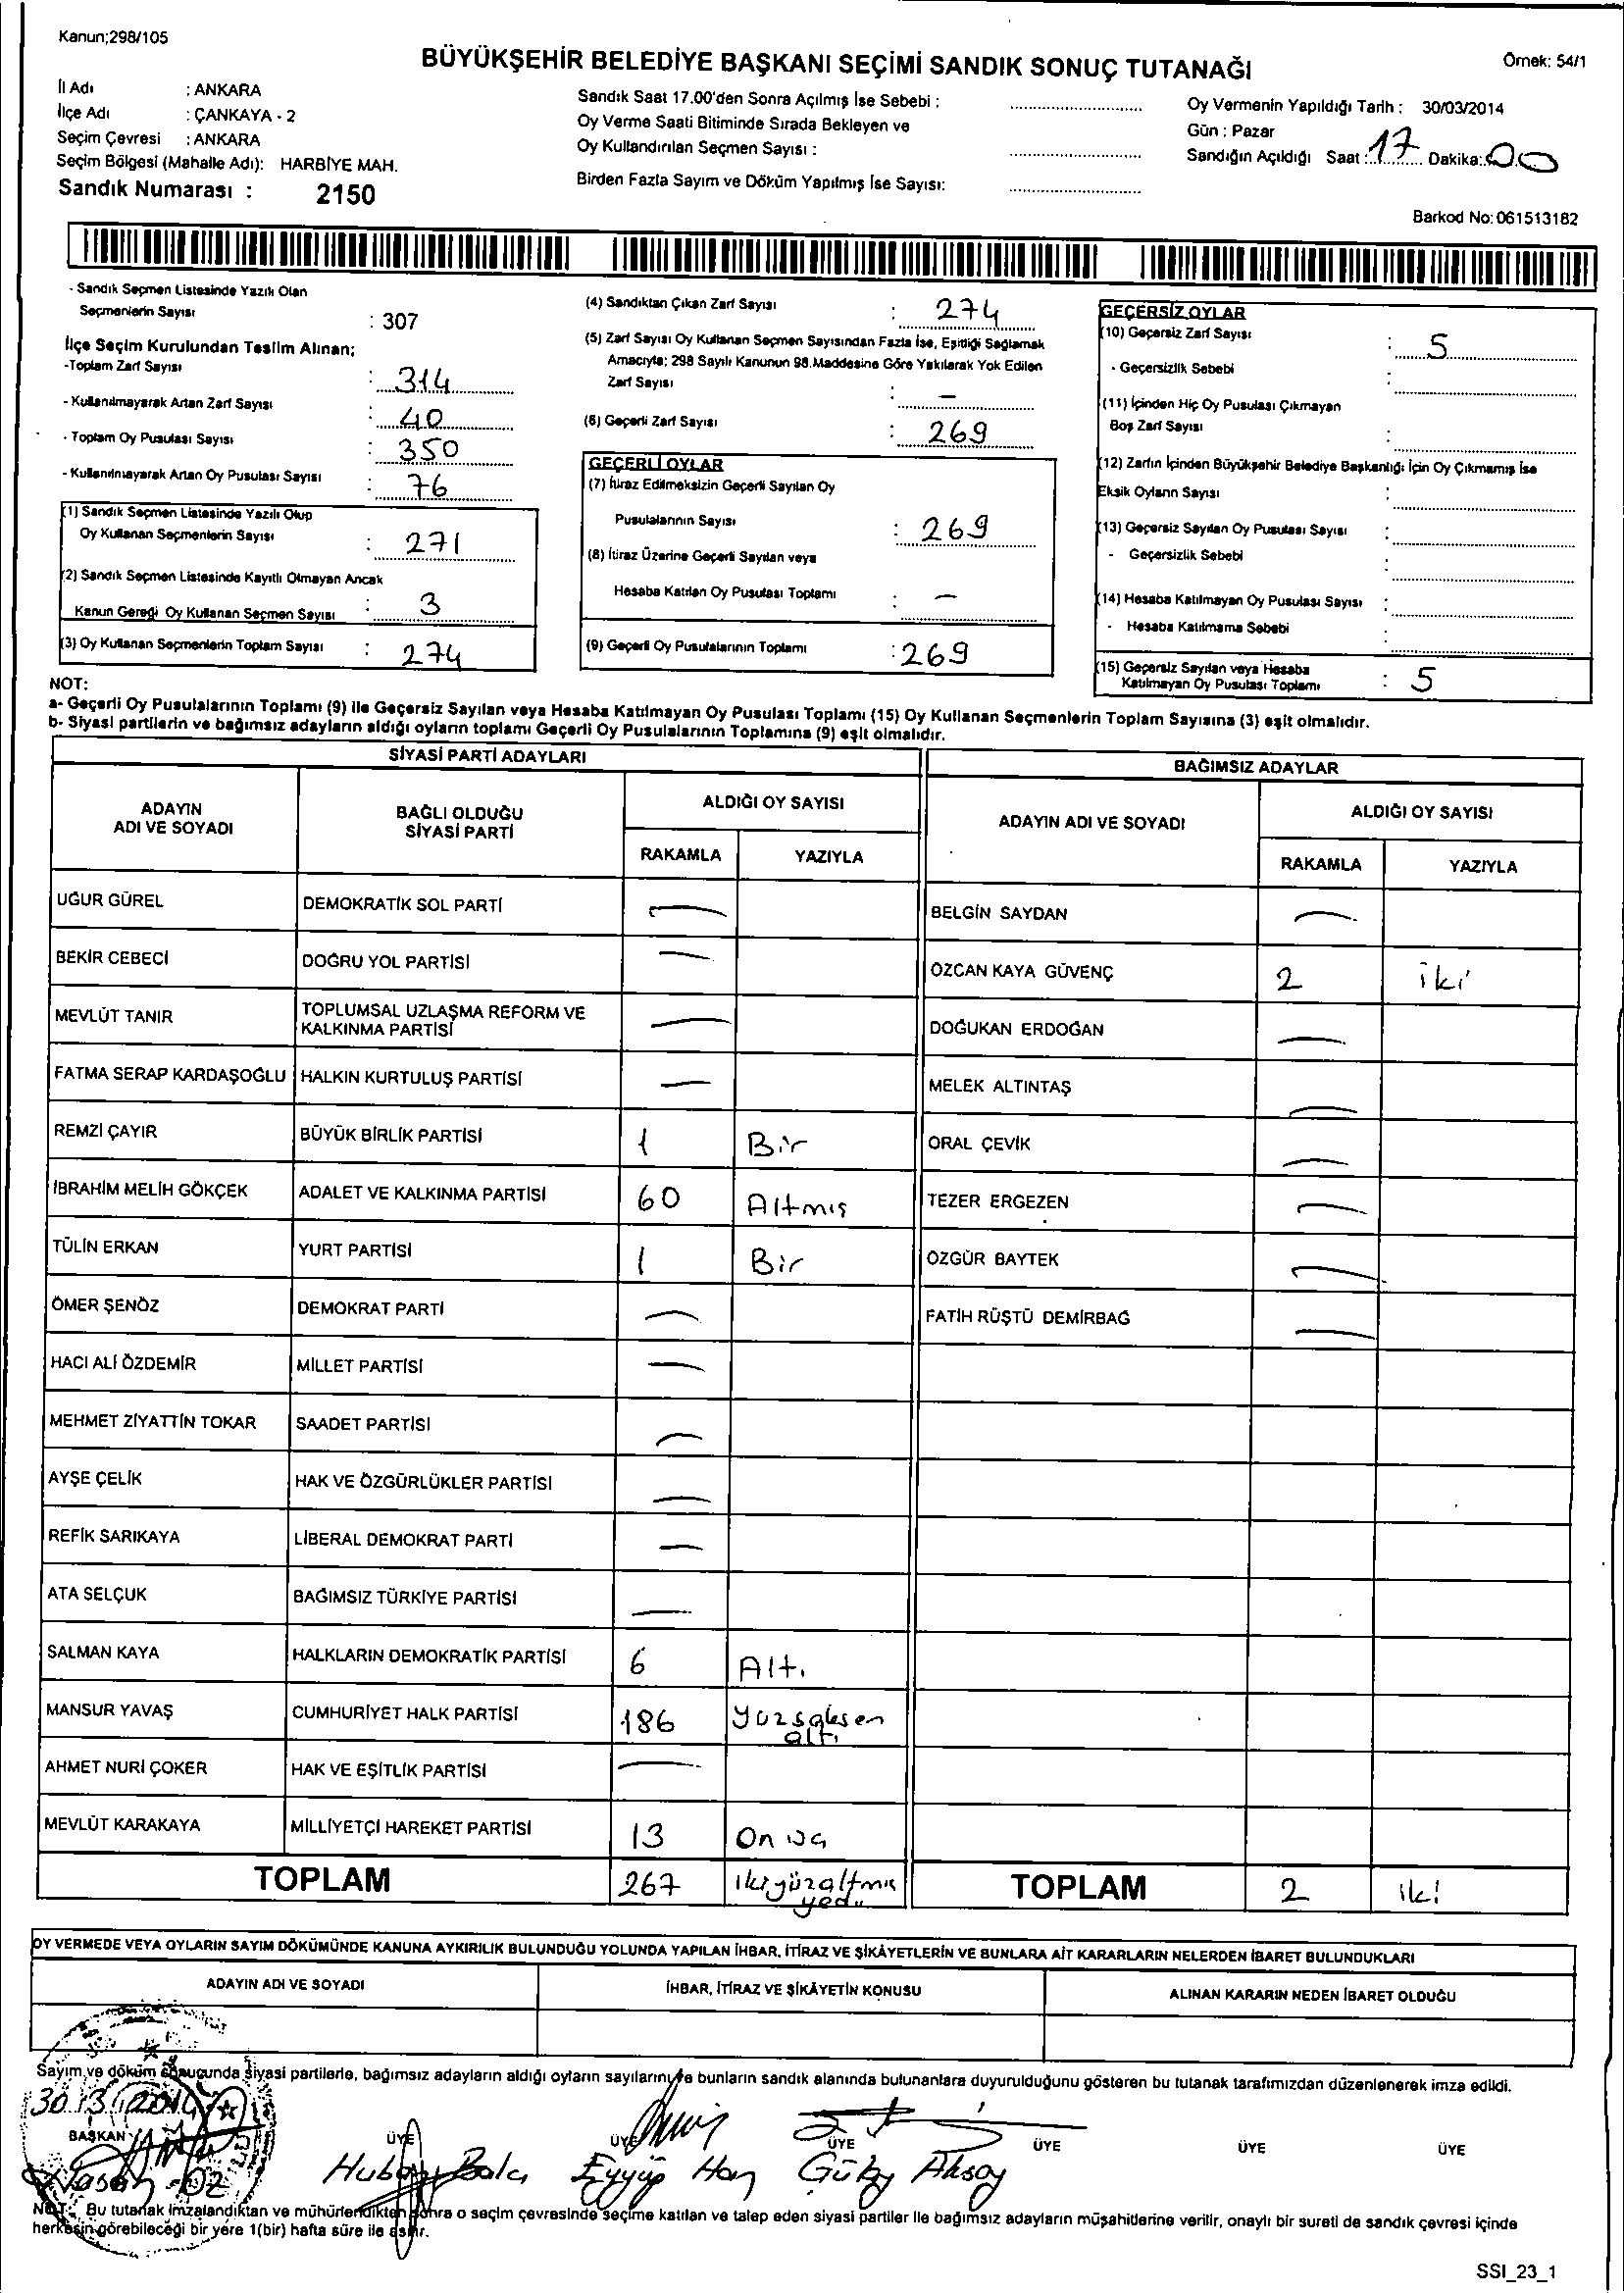 Kanun;298/105
BÜYÜKŞEHİR BELEDİYE BAŞKANI SEÇİMİ SANDIK SONUÇ TUTANAĞI
Örnek: 54/1
İl Adı : ANKARA
İlçe Adı : ÇANKAYA - 2
Seçim Çevresi : ANKARA
Seçim Bölgesi (Mahalle Adı): HARBİYE MAH.
Sandık Numarası : 2150
Sandık Saat 17.00'den Sonra Açılmış İse Sebebi :
Oy Verme Saati Bitiminde Sırada Bekleyen ve
Oy Kullandırılan Seçmen Sayısı :
Birden Fazla Sayım ve Döküm Yapılmış İse Sayısı:
Oy Vermenin Yapıldığı Tarih : 30/03/2014
Gün : Pazar
Sandığın Açıldığı Saat: 17 Dakika: 00
Barkod No: 061513182
- Sandık Seçmen Listesinde Yazılı Olan
Seçmenlerin Sayısı : 307
İlçe Seçim Kurulundan Teslim Alınan;
-Toplam Zarf Sayısı : 314
- Kullanılmayarak Artan Zarf Sayısı : 40
- Toplam Oy Pusulası Sayısı : 350
- Kullanılmayarak Artan Oy Pusulası Sayısı : 76
(1) Sandık Seçmen Listesinde Yazılı Olup
Oy Kullanan Seçmenlerin Sayısı : 271
(2) Sandık Seçmen Listesinde Kayıtlı Olmayan Ancak
Kanun Gereği Oy Kullanan Seçmen Sayısı : 3
(3) Oy Kullanan Seçmenlerin Toplam Sayısı : 274
(4) Sandıktan Çıkan Zarf Sayısı : 274
(5) Zarf Sayısı Oy Kullanan Seçmen Sayısından Fazla İse, Eşitliği Sağlamak
Amacıyla; 298 Sayılı Kanunun 98.Maddesine Göre Yakılarak Yok Edilen
Zarf Sayısı : -
(6) Geçerli Zarf Sayısı : 269
GEÇERLİ OYLAR
(7) İtiraz Edilmeksizin Geçerli Sayılan Oy
Pusulalarının Sayısı : 269
(8) İtiraz Üzerine Geçerli Sayılan veya
Hesaba Katılan Oy Pusulası Toplamı : -
(9) Geçerli Oy Pusulalarının Toplamı : 269
GEÇERSİZ OYLAR
(10) Geçersiz Zarf Sayısı : 5
- Geçersizlik Sebebi :
(11) İçinden Hiç Oy Pusulası Çıkmayan
Boş Zarf Sayısı :
(12) Zarfın İçinden Büyükşehir Belediye Başkanlığı İçin Oy Çıkmamış İse
Eksik Oyların Sayısı :
(13) Geçersiz Sayılan Oy Pusulası Sayısı :
- Geçersizlik Sebebi :
(14) Hesaba Katılmayan Oy Pusulası Sayısı :
- Hesaba Katılmama Sebebi :
(15) Geçersiz Sayılan veya Hesaba
Katılmayan Oy Pusulası Toplamı : 5
NOT:
a- Geçerli Oy Pusulalarının Toplamı (9) ile Geçersiz Sayılan veya Hesaba Katılmayan Oy Pusulası Toplamı (15) Oy Kullanan Seçmenlerin Toplam Sayısına (3) eşit olmalıdır.
b- Siyasi partilerin ve bağımsız adayların aldığı oyların toplamı Geçerli Oy Pusulalarının Toplamına (9) eşit olmalıdır.
SİYASİ PARTİ ADAYLARI
ADAYIN ADI VE SOYADI BAĞLI OLDUĞU SİYASİ PARTİ ALDIĞI OY SAYISI
RAKAMLA YAZIYLA
UĞUR GÜREL DEMOKRATİK SOL PARTİ —
BEKİR CEBECİ DOĞRU YOL PARTİSİ —
MEVLÜT TANIR TOPLUMSAL UZLAŞMA REFORM VE KALKINMA PARTİSİ —
FATMA SERAP KARDAŞOĞLU HALKIN KURTULUŞ PARTİSİ —
REMZİ ÇAYIR BÜYÜK BİRLİK PARTİSİ 1 Bir
İBRAHİM MELİH GÖKÇEK ADALET VE KALKINMA PARTİSİ 60 Altmış
TÜLİN ERKAN YURT PARTİSİ 1 Bir
ÖMER ŞENÖZ DEMOKRAT PARTİ —
HACI ALİ ÖZDEMİR MİLLET PARTİSİ —
MEHMET ZİYATTİN TOKAR SAADET PARTİSİ —
AYŞE ÇELİK HAK VE ÖZGÜRLÜKLER PARTİSİ —
REFİK SARIKAYA LİBERAL DEMOKRAT PARTİ —
ATA SELÇUK BAĞIMSIZ TÜRKİYE PARTİSİ —
SALMAN KAYA HALKLARIN DEMOKRATİK PARTİSİ 6 Altı
MANSUR YAVAŞ CUMHURİYET HALK PARTİSİ 186 Yüzseksen altı
AHMET NURİ ÇOKER HAK VE EŞİTLİK PARTİSİ —
MEVLÜT KARAKAYA MİLLİYETÇİ HAREKET PARTİSİ 13 On üç
TOPLAM 267 ikiyüzaltmış yedi
BAĞIMSIZ ADAYLAR
ADAYIN ADI VE SOYADI ALDIĞI OY SAYISI
RAKAMLA YAZIYLA
BELGİN SAYDAN —
ÖZCAN KAYA GÜVENÇ 2 iki
DOĞUKAN ERDOĞAN —
MELEK ALTINTAŞ —
ORAL ÇEVİK —
TEZER ERGEZEN —
ÖZGÜR BAYTEK —
FATİH RÜŞTÜ DEMİRBAĞ —
TOPLAM 2 iki
OY VERMEDE VEYA OYLARIN SAYIM DÖKÜMÜNDE KANUNA AYKIRILIK BULUNDUĞU YOLUNDA YAPILAN İHBAR, İTİRAZ VE ŞİKÂYETLERİN VE BUNLARA AİT KARARLARIN NELERDEN İBARET BULUNDUKLARI
ADAYIN ADI VE SOYADI İHBAR, İTİRAZ VE ŞİKÂYETİN KONUSU ALINAN KARARIN NEDEN İBARET OLDUĞU
Sayım ve döküm sonucunda siyasi partilerle, bağımsız adayların aldığı oyların sayılarını ve bunların sandık alanında bulunanlara duyurulduğunu gösteren bu tutanak tarafımızdan düzenlenerek imza edildi.
30/3/2014
BAŞKAN ÜYE ÜYE ÜYE ÜYE ÜYE ÜYE
Hasan Öz Eyyüp Han Aksoy
NOT: Bu tutanak imzalandıktan ve mühürlendikten sonra o seçim çevresinde seçime katılan ve talep eden siyasi partiler ile bağımsız adayların müşahitlerine verilir, onaylı bir sureti de sandık çevresi içinde
herkesin görebileceği bir yere 1(bir) hafta süre ile asılır.
SSI_23_1